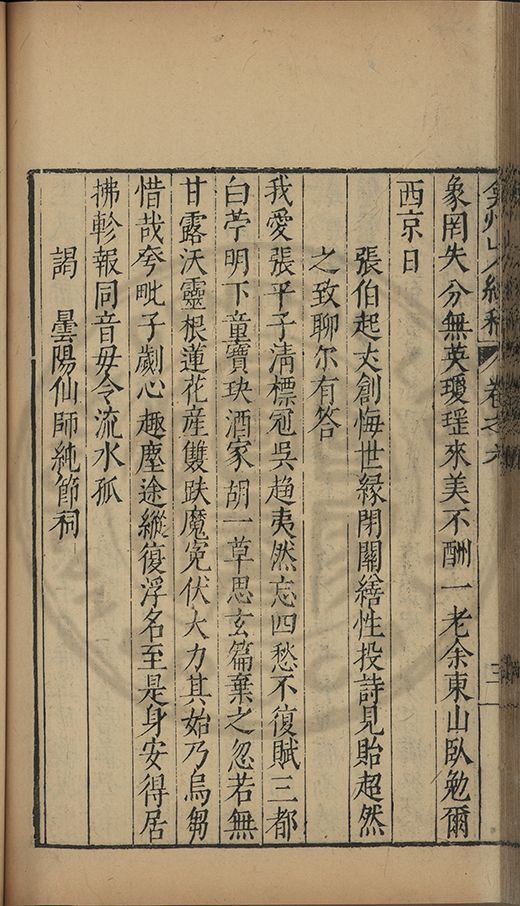 弇州山人續稿 卷之六 三
象罔失分無英瓊瑶來美不酬一老余東山臥勉爾
西京日
張伯起大創悔世緣閉關繕性投詩見貽超然
之致聊尔有答
我愛張平子清標冠吳趋夷然忘四愁不復賦三都
白苧明下童寶玦酒家胡一草思玄篇棄之忽若無
甘露沃靈根蓮花産雙趺魔寃伏大力其始乃烏芻
惜哉夸毗子劌心趣塵途縱復浮名至是身安得居
拂軫報同音毋令流水孤
謁 曇陽仙師純節祠